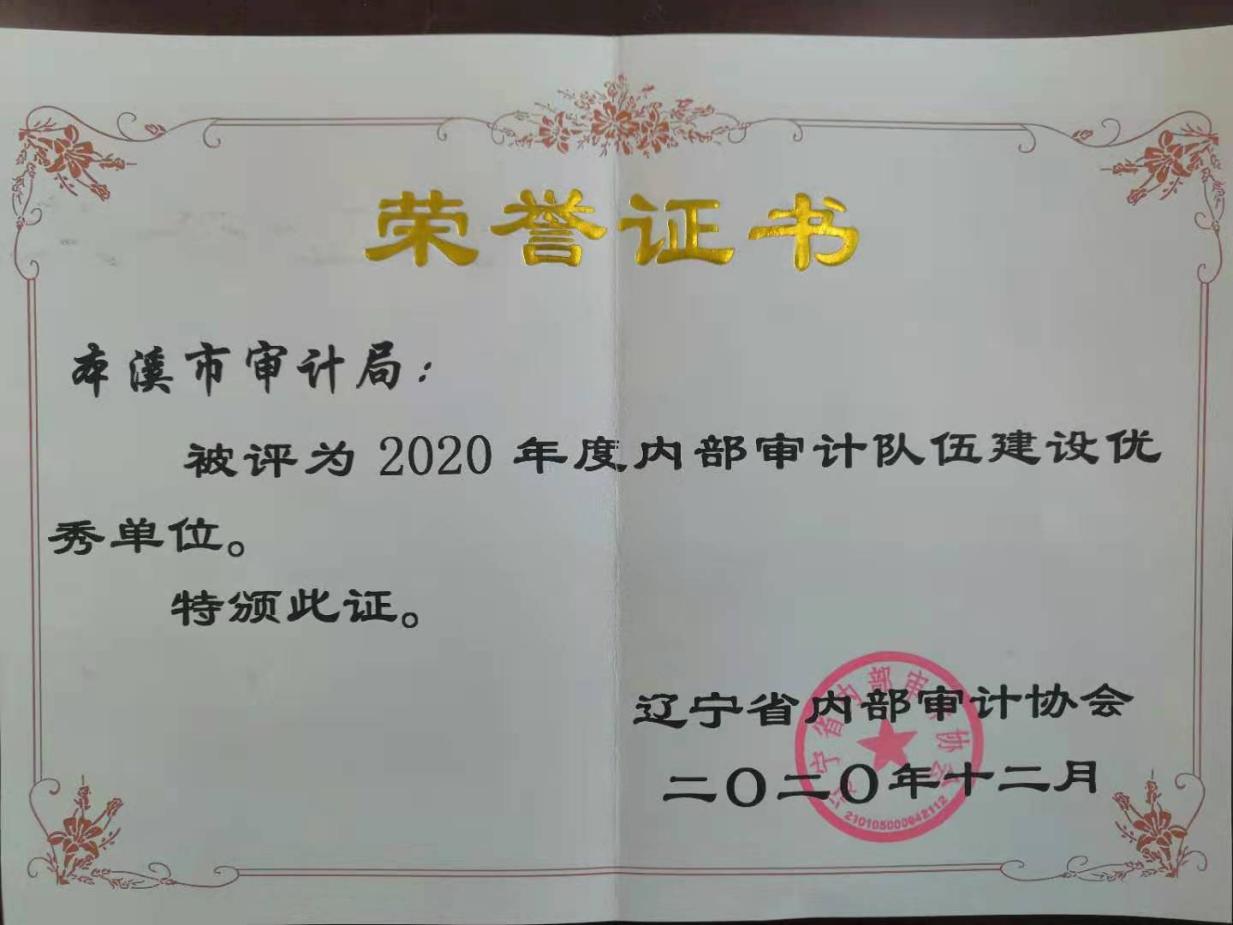 荣誉证书
本溪市审计局：
被评为 2020 年度内部审计队伍建设优
秀单位。
特颁此证。
辽宁省内部审计协会
二〇二〇年十二月
辽宁省内部审计协会